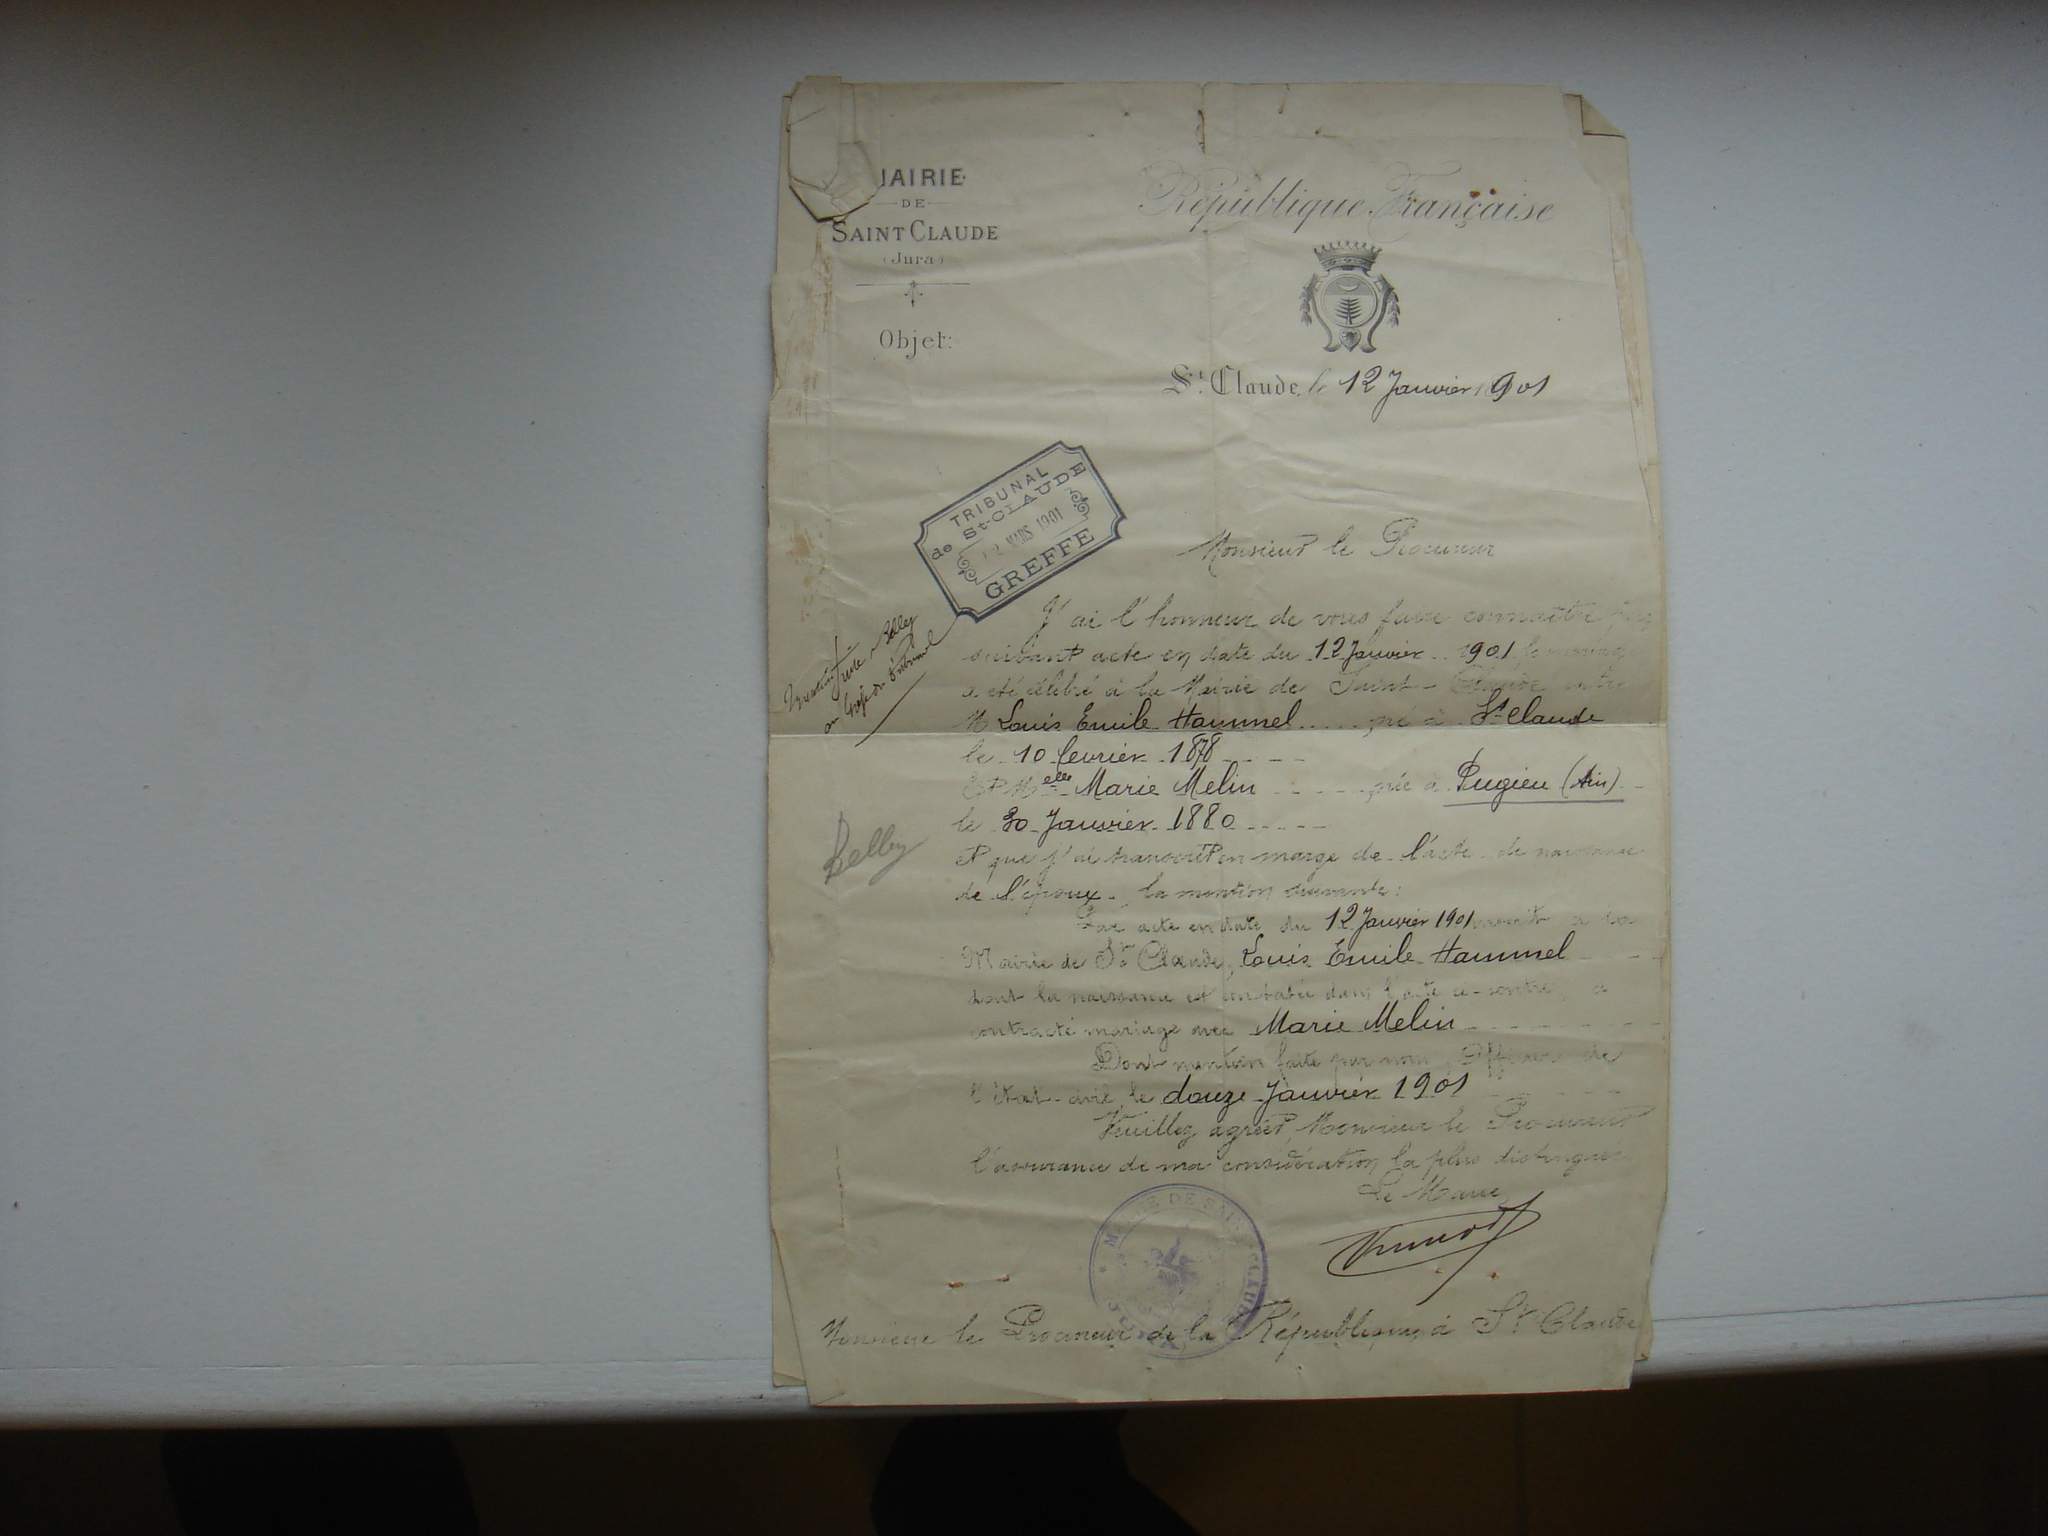 MAIRIE
DE
SAINT CLAUDE
(Jura)
Objet:
République Française
St. Claude, le 12 Janvier 1901
TRIBUNAL
de St-CLAUDE
MARS 1901
GREFFE
Monsieur le Procureur
J'ai l'honneur de vous faire connaître que
suivant acte en date du 12 Janvier 1901 le mariage
a été célébré à la Mairie de Saint-Claude entre
M Louis Emile Hammel né à St Claude
le 10 fevrier 1878
Et Melle Marie Melin née à Pugieu (Ain)
le 30 Janvier 1880
et que j'ai transcrit en marge de l'acte de naissance
de l'époux la mention suivante:
Par acte en date du 12 Janvier 1901 inscrit à la
Mairie de St Claude, Louis Emile Hammel
dont la naissance est constatée dans l'acte ci-contre, a
contracté mariage avec Marie Melin
Dont mention faite par nous, Officier de
l'état-civil le douze Janvier 1901
Veuillez agréer, Monsieur le Procureur
l'assurance de ma considération la plus distinguée
Le Maire,
MAIRIE DE SAINT-CLAUDE
Monsieur le Procureur de la République à St Claude
Belley
au Greffe du Tribunal
Belley